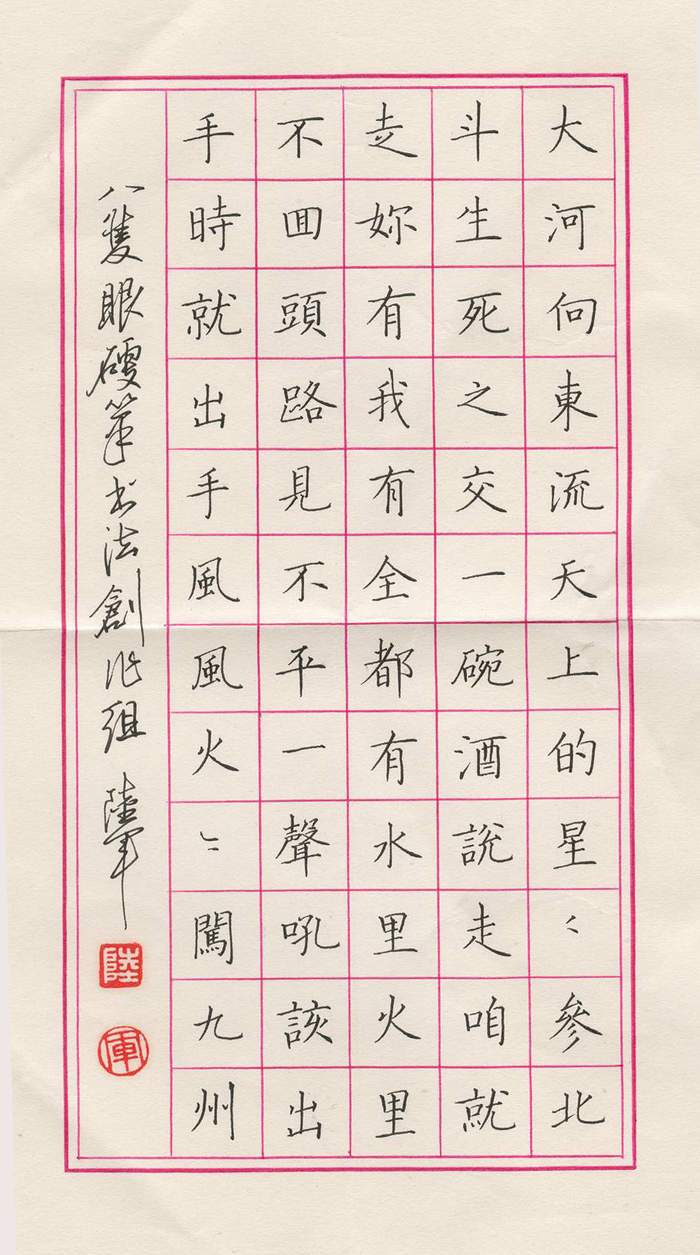 大河向東流天上的星〻參北
斗生死之交一碗酒説走咱就
走妳有我有全都有水里火里
不回頭路見不平一聲吼該出
手時就出手風風火〻闖九州
八隻眼硬筆书法創作組 陸軍
陸
軍